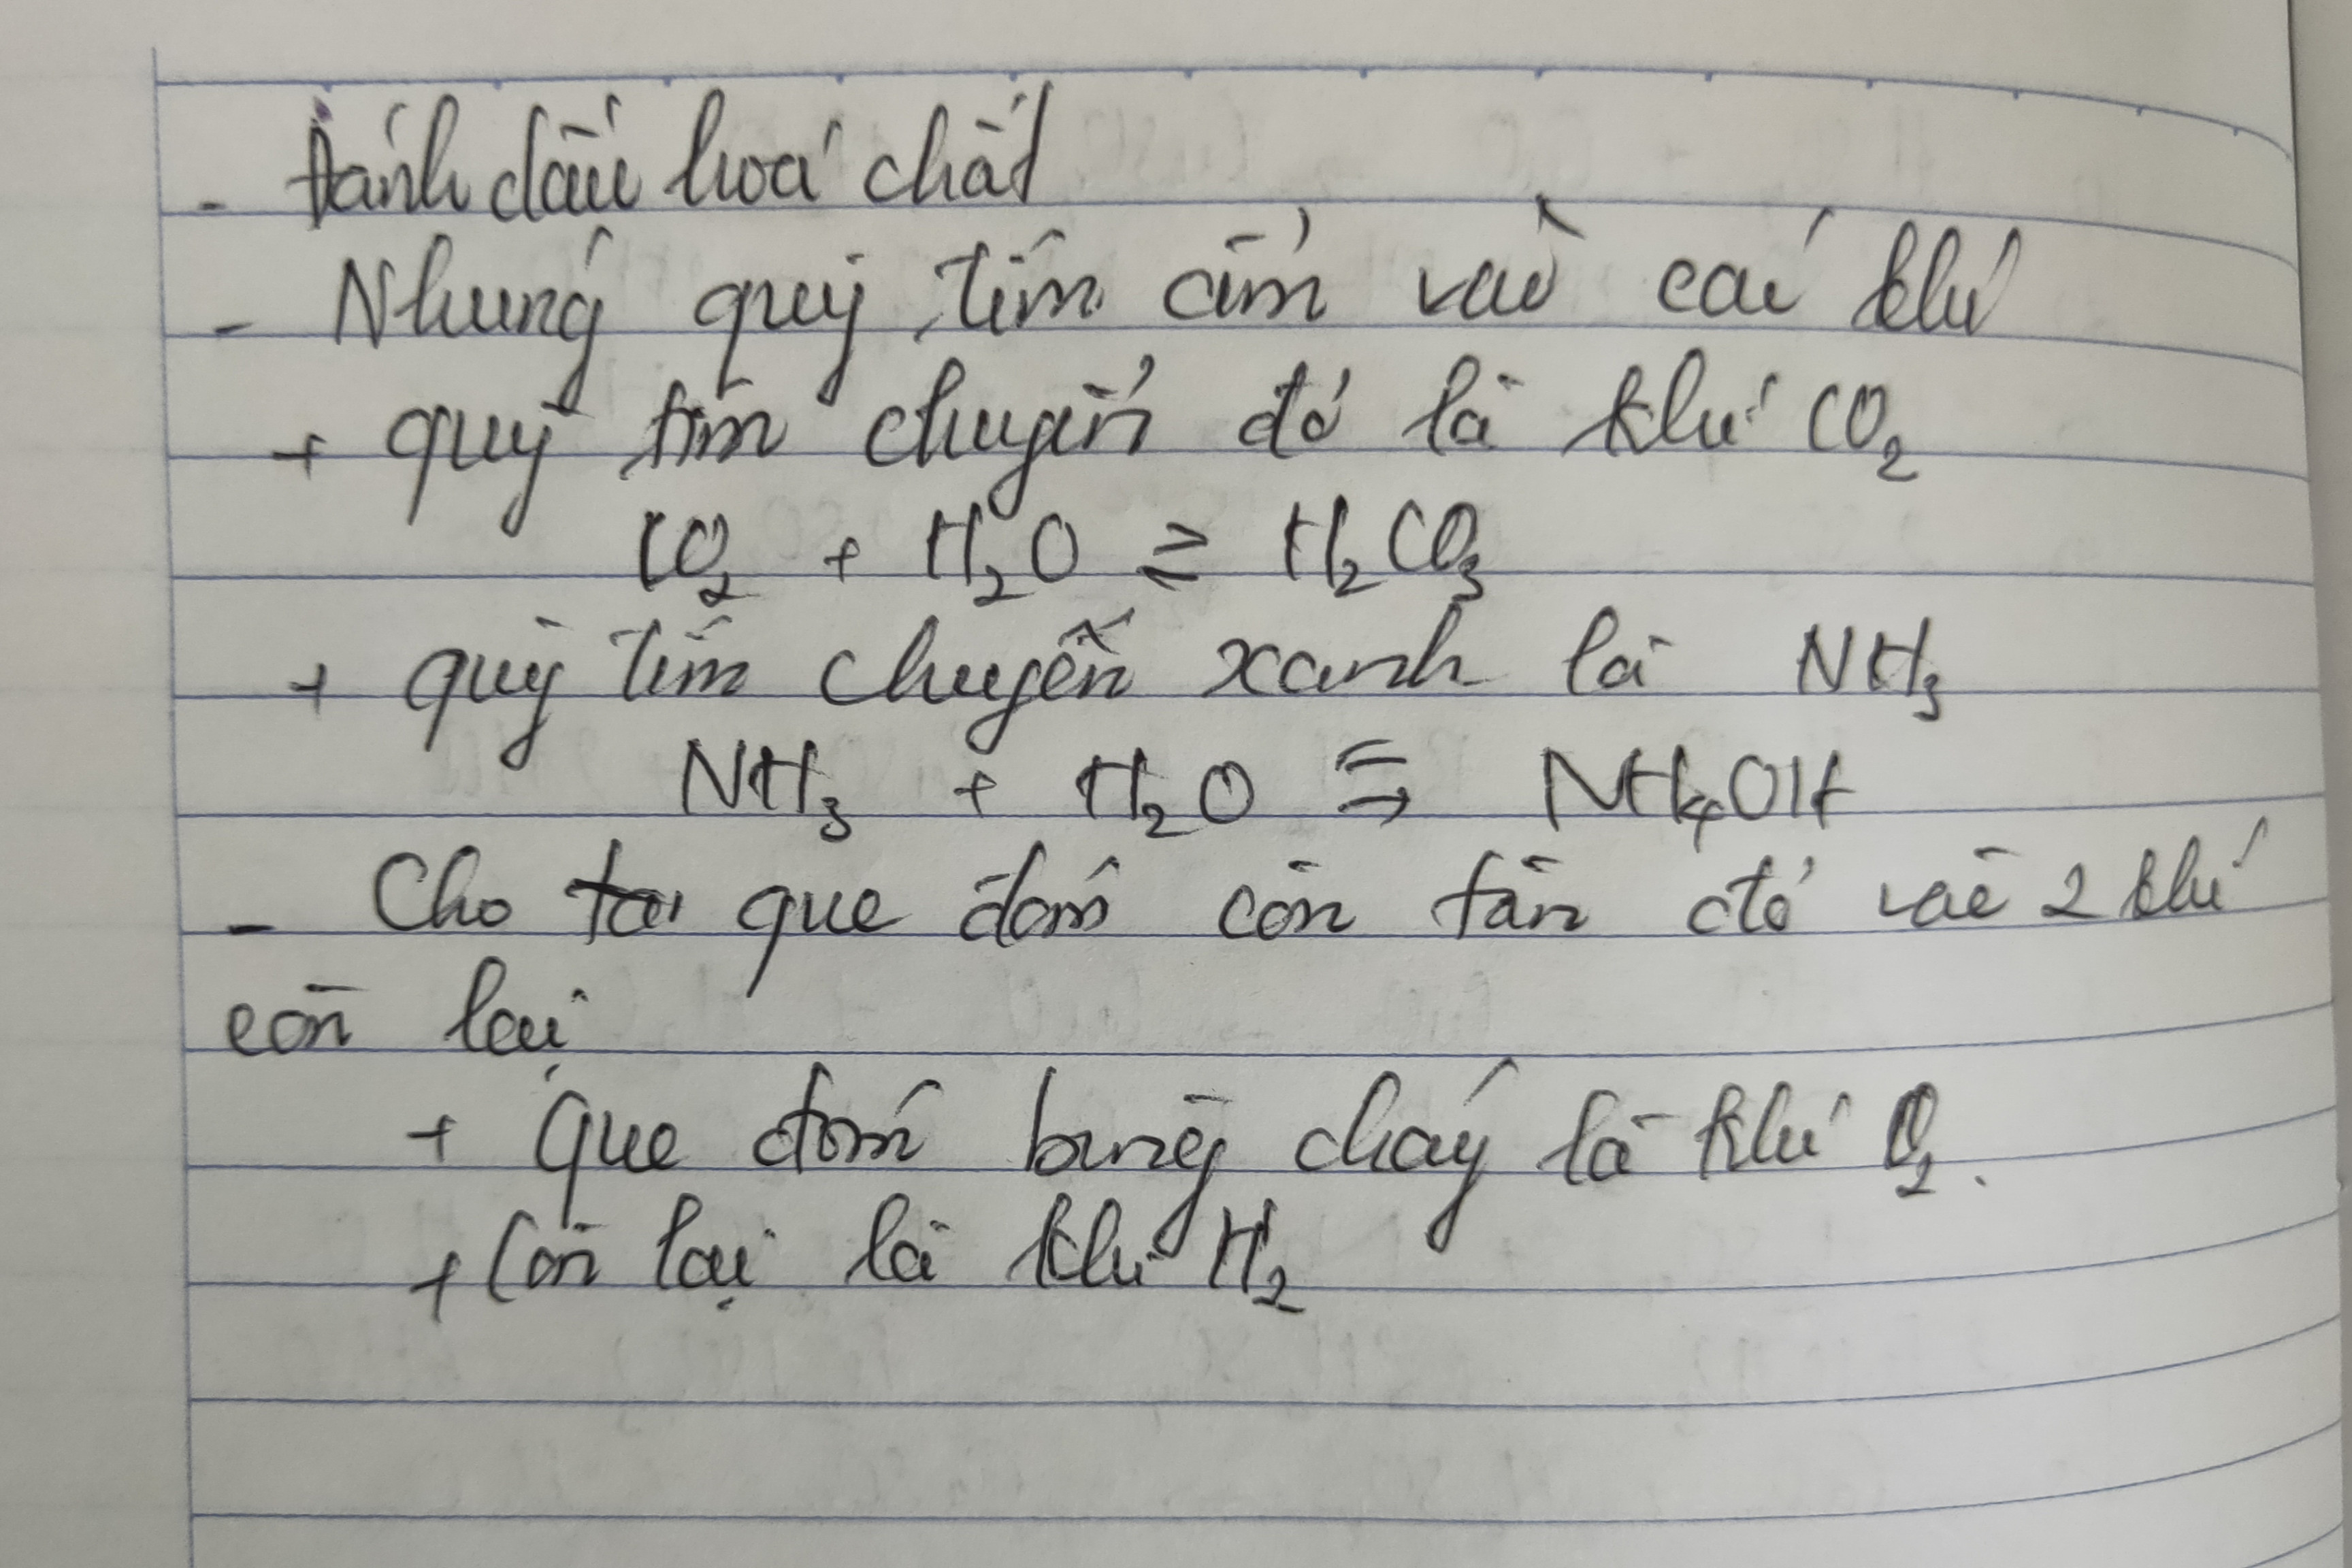 - Đánh dấu hoá chất
- Nhúng quỳ tím ẩm vào các khí
+ quỳ tím chuyển đỏ là khí CO₂
CO₂ + H₂O ⇌ H₂CO₃
+ quỳ tím chuyển xanh là NH₃
NH₃ + H₂O ⇌ NH₄OH
- Cho que đóm còn tàn đỏ vào 2 khí
còn lại
+ Que đóm bùng cháy là khí O₂.
+ Còn lại là khí H₂